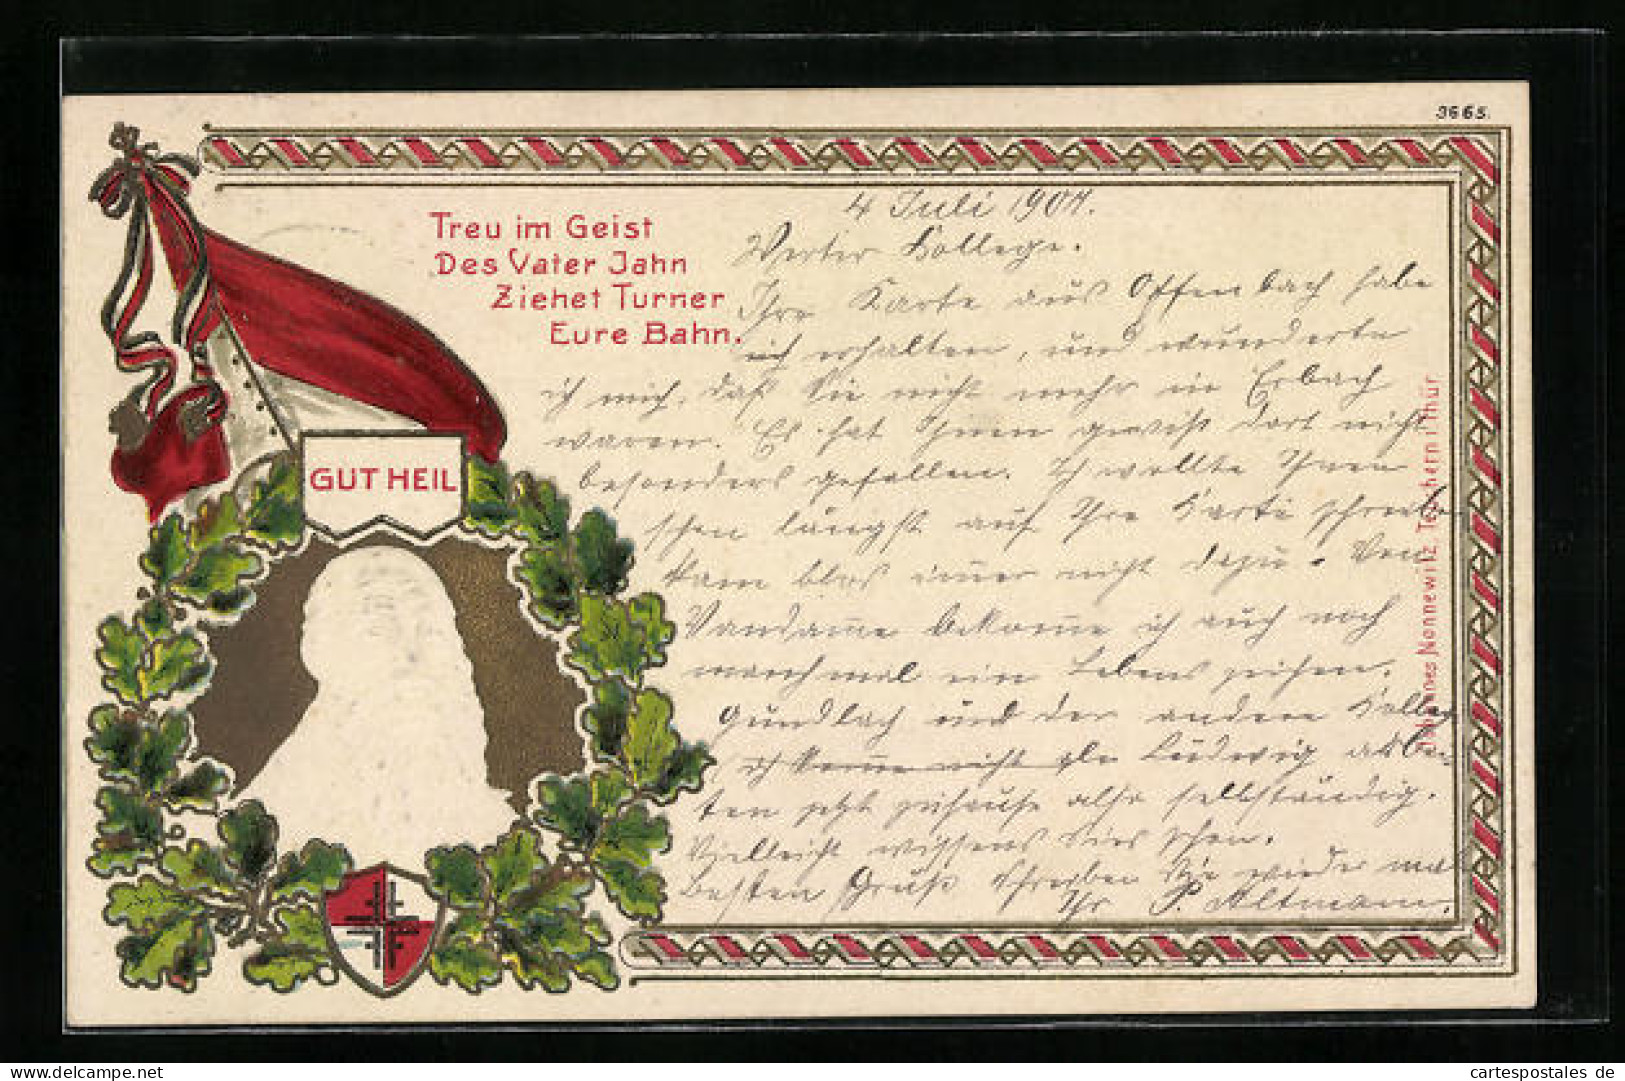 3665.
Treu im Geist
Des Vater Jahn
Ziehet Turner
Eure Bahn.
GUT HEIL
4 Juli 1904.
Werter Kollege.
Ihre Karte aus Offenbach habe
ich erhalten, und wunderte
ich mich, daß Sie nicht mehr in Erbach
waren. Es hat Ihnen gewiß dort nicht
besonders gefallen. Ich wollte Ihnen
schon längst auf Ihre Karte schreiben
kam blos immer nicht dazu. Von
Vandame bekomme ich auch noch
manchmal ein Lebenszeichen.
Gundlach und der andere Kollege
ich komme nicht Ludwig arbei-
ten jetzt zuhause also selbständig.
Vielleicht wissens dies schon.
Besten Gruß schreiben Sie wieder mal
Ihr P. Altmann.
Johannes Nonnewitz, Teuchern i Thür
cartespostales de